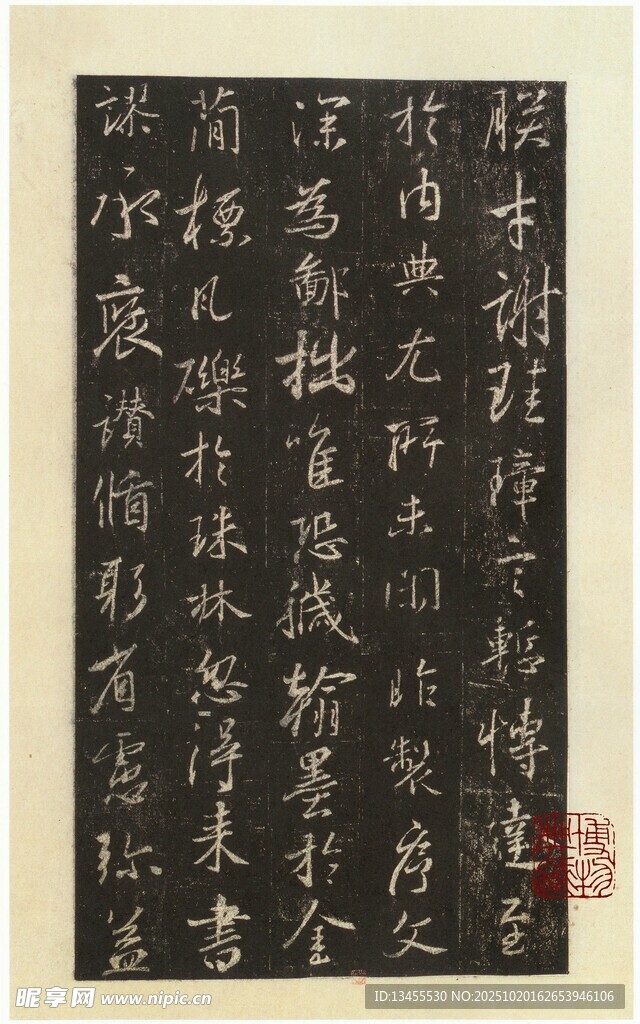 朕才謝珪璋言慙博達至
於內典尤所未閑昨製序文
深為鄙拙唯恐穢翰墨於金
簡標瓦礫於珠林忽得来書
謬承褒讃循躬省慮弥益
博物
昵享网 www.nipic.cn
ID:13455530 NO:20251020162653946106